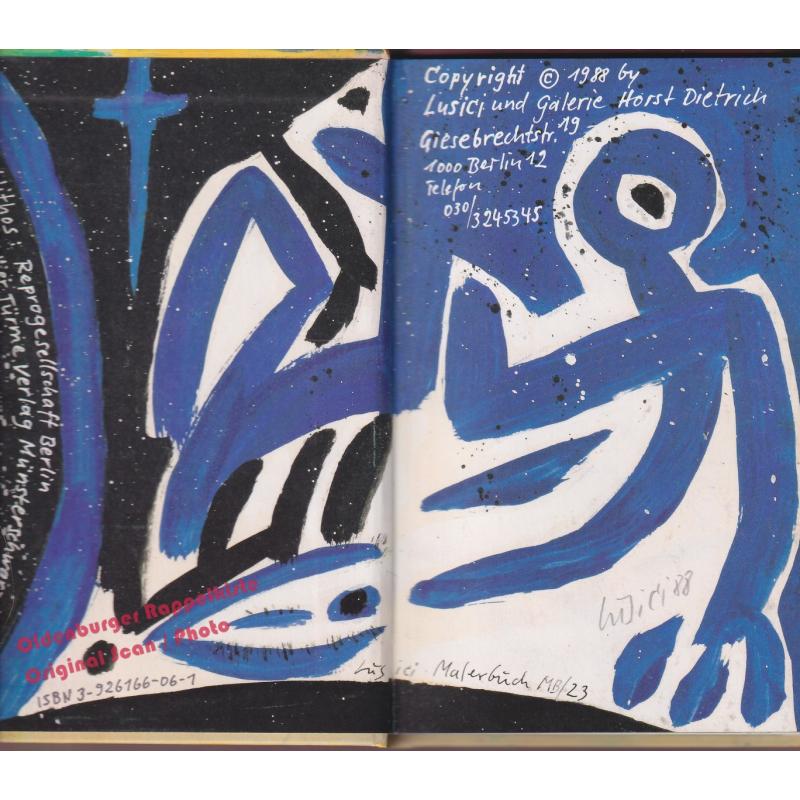 Copyright © 1988 by
Lusici und Galerie Horst Dietrich
Giesebrechtstr. 19
1000 Berlin 12
Telefon
030/3245345
Lithos: Reprogesellschaft Berlin
Vier Türme Verlag Münsterschwarz
Oldenburger Rappelkiste
Original Scan / Photo
ISBN 3-926166-06-1
Lusici Malerbuch MB/23
Lusici 88